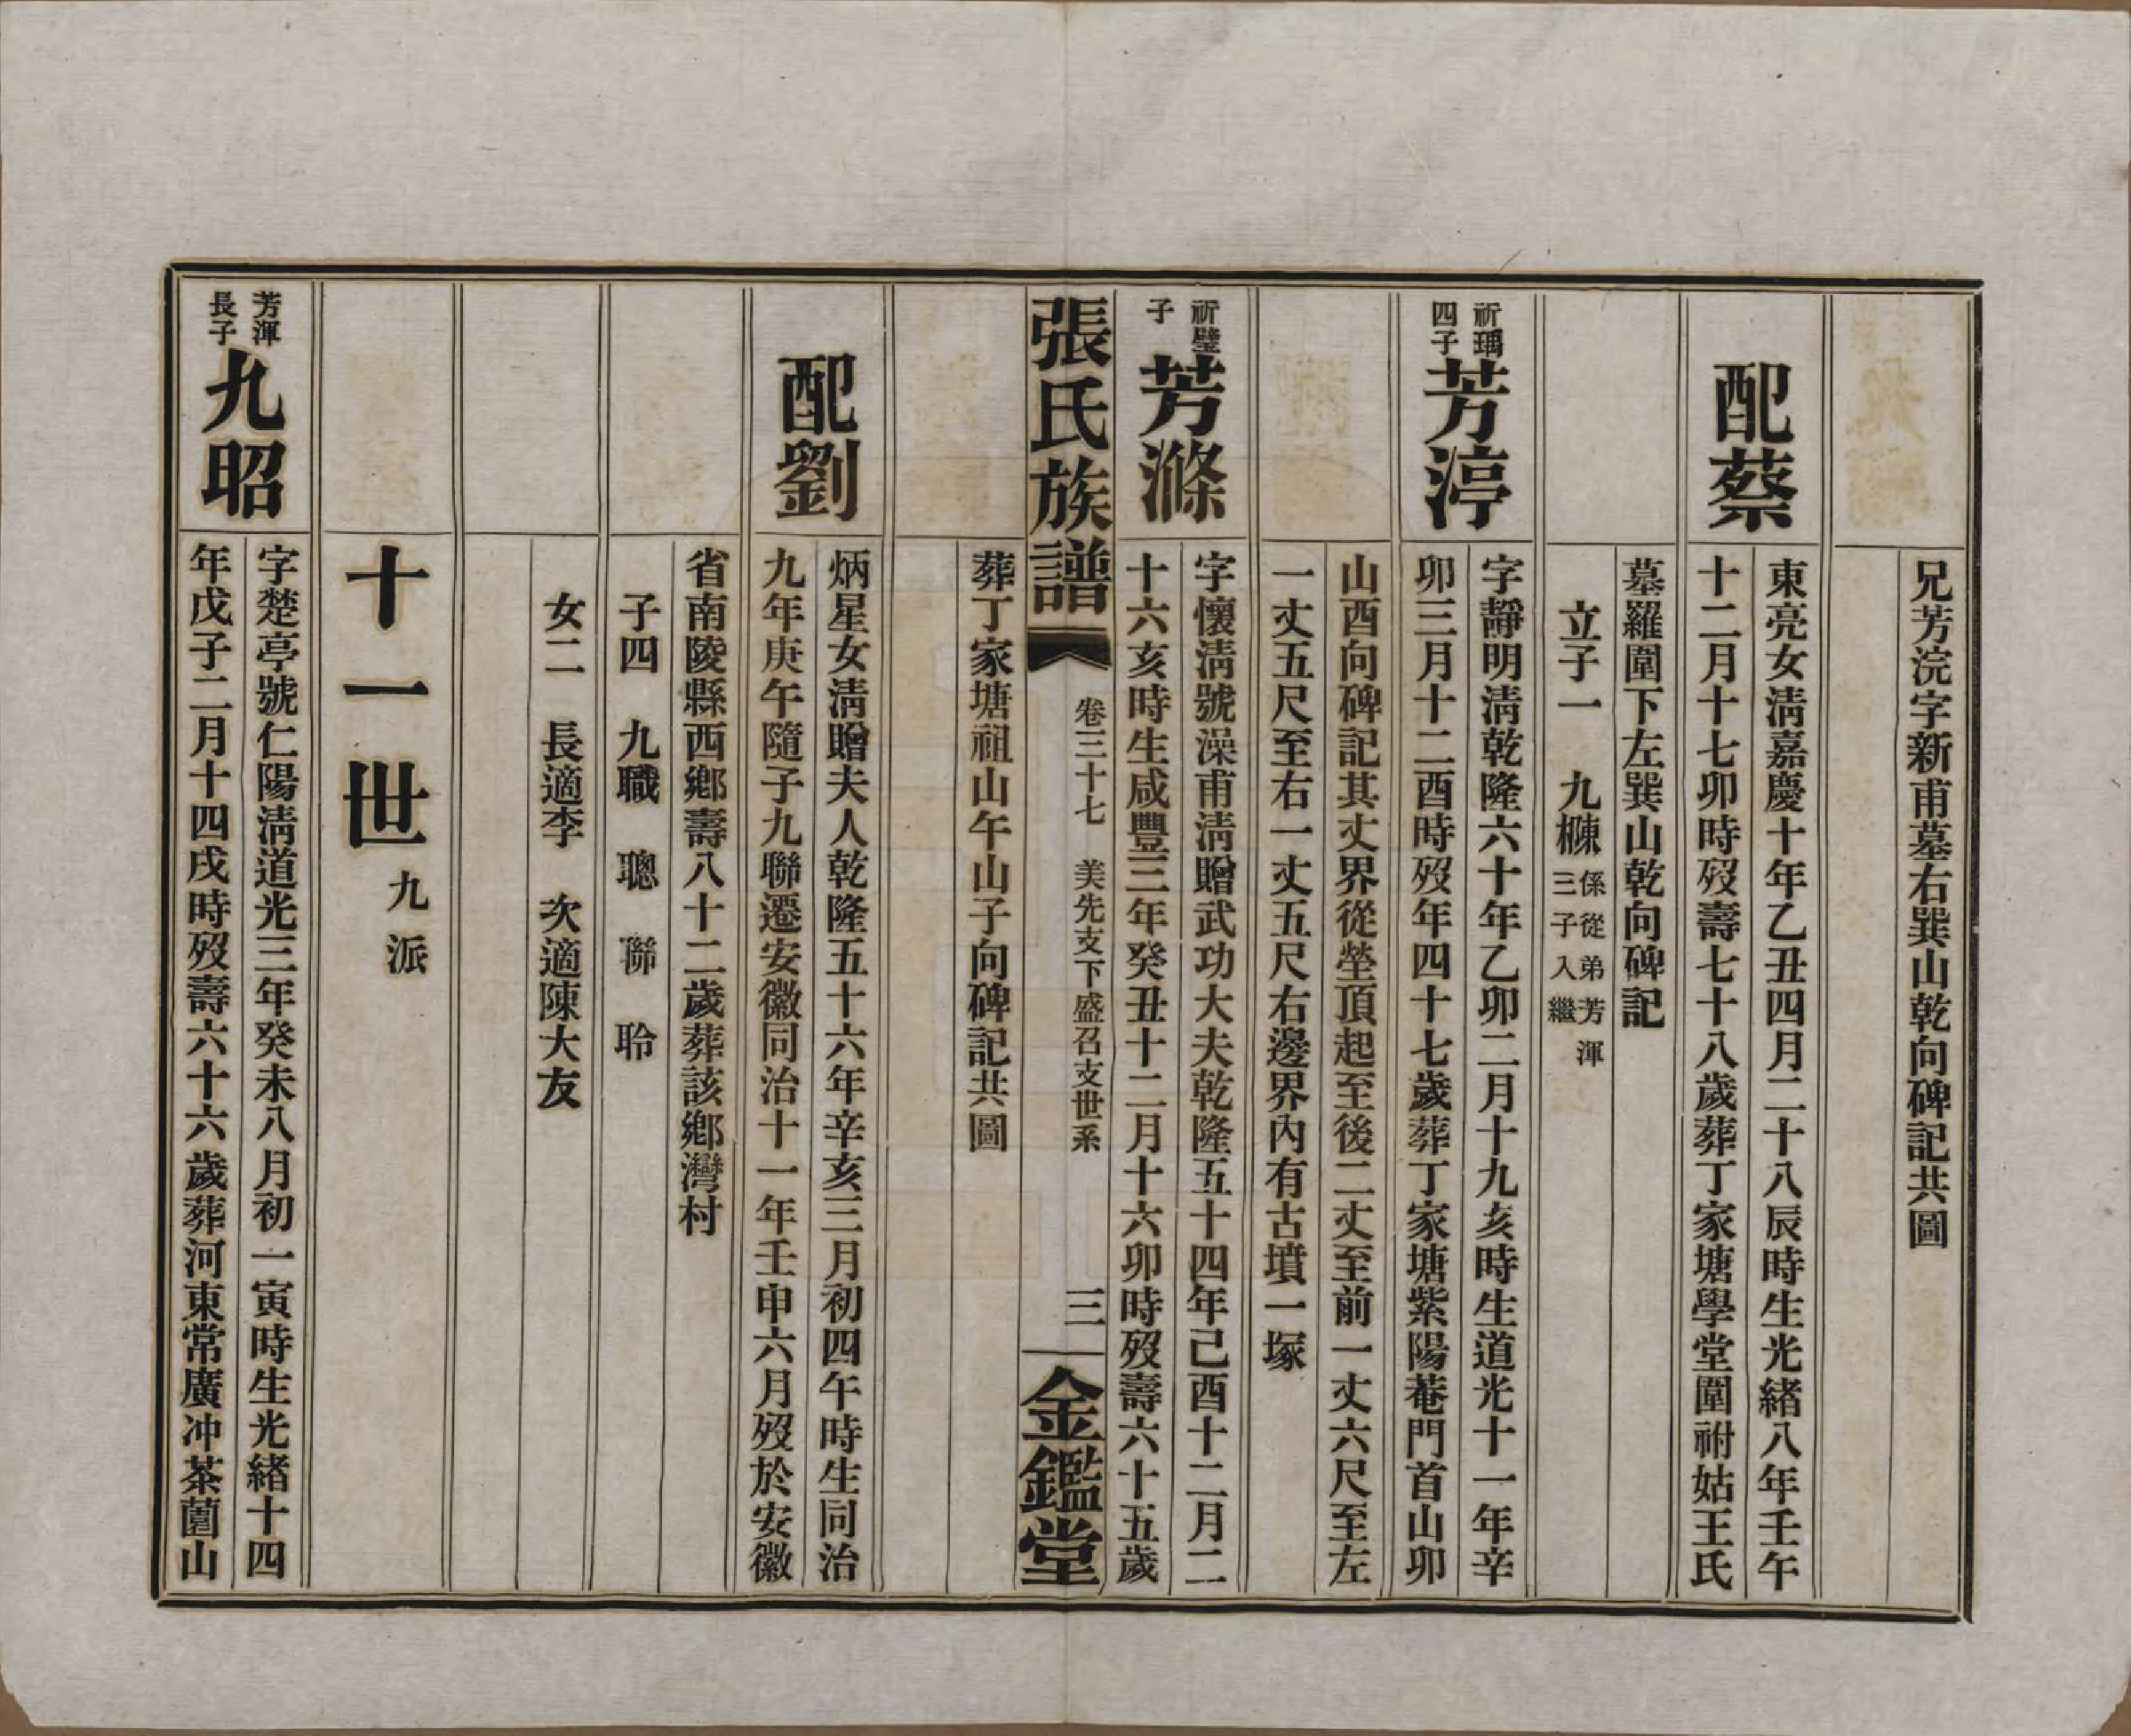 兄芳浣字新甫墓右巽山乾向碑記共圖
配蔡
東亮女淸嘉慶十年乙丑四月二十八辰時生光緒八年壬午
十二月十七卯時歿壽七十八歲葬丁家塘學堂圍祔姑王氏
墓羅圍下左巽山乾向碑記
立子一　九㯥
係從弟芳渾
三子入繼
祈瑀
四子
芳渟
字靜明淸乾隆六十年乙卯二月十九亥時生道光十一年辛
卯三月十二酉時歿年四十七歲葬丁家塘紫陽菴門首山卯
山酉向碑記其丈界從塋頂起至後二丈至前一丈六尺至左
一丈五尺至右一丈五尺右邊界內有古墳一塚
祈璧
子
芳滌
字懷淸號澡甫淸贈武功大夫乾隆五十四年己酉十二月二
十六亥時生咸豐三年癸丑十二月十六卯時歿壽六十五歲
張氏族譜
卷三十七　美先支下盛召支世系
三
金鑑堂
葬丁家塘祖山午山子向碑記共圖
配劉
炳星女淸贈夫人乾隆五十六年辛亥三月初四午時生同治
九年庚午隨子九聯遷安徽同治十一年壬申六月歿於安徽
省南陵縣西鄉壽八十二歲葬該鄉灣村
子四　九職　聰　聯　聆
女二　長適李　次適陳大友
十一世
九派
芳渾
長子
九昭
字楚亭號仁陽淸道光三年癸未八月初一寅時生光緒十四
年戊子二月十四戌時歿壽六十六歲葬河東常廣冲茶薗山